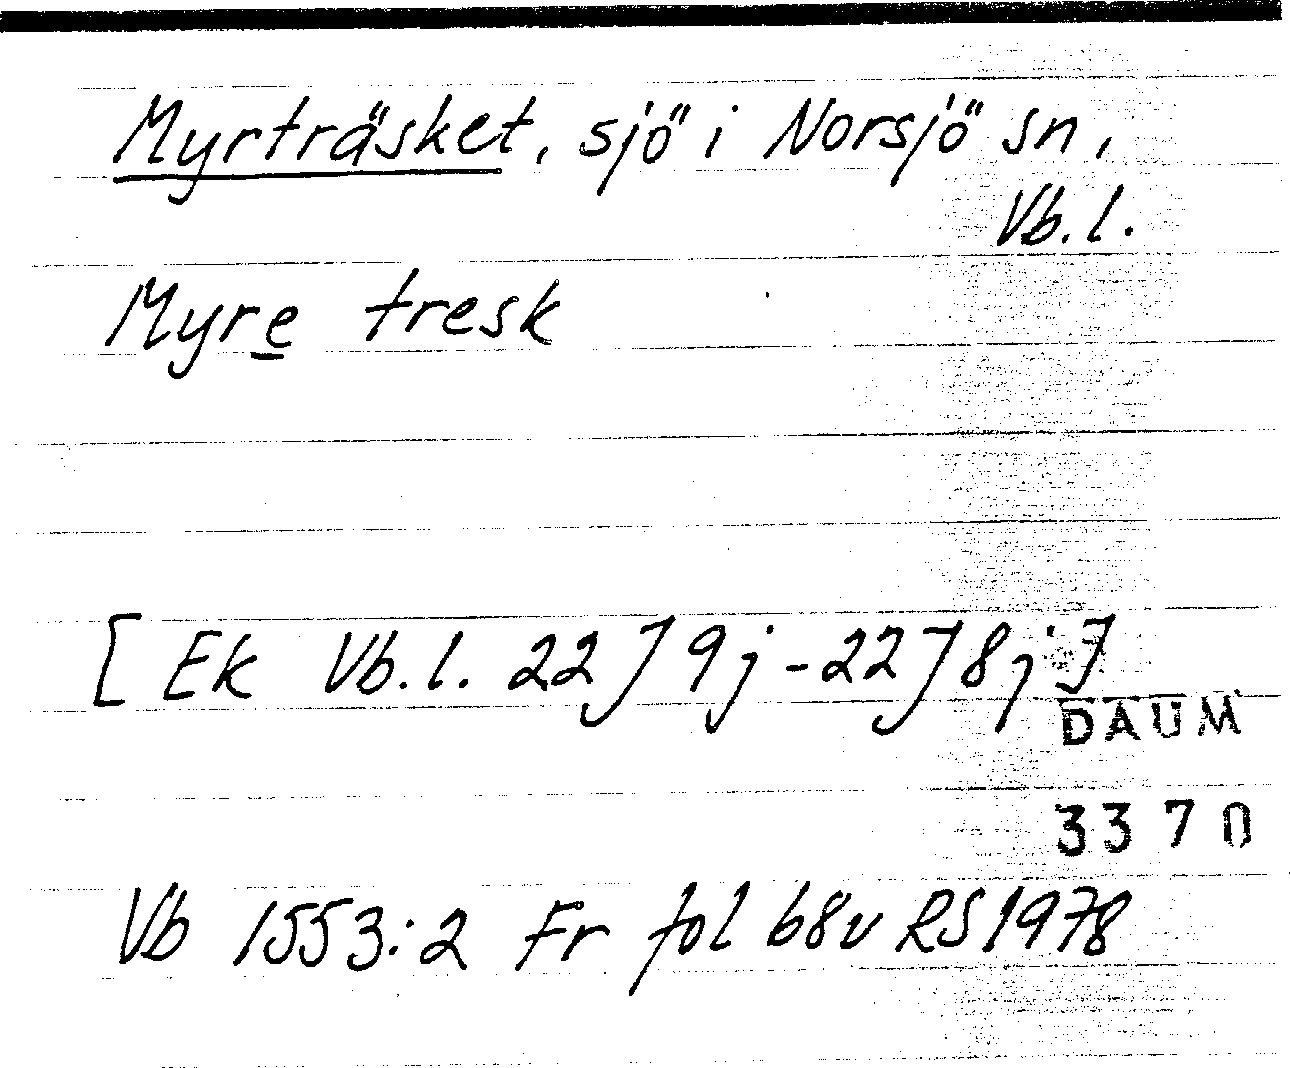 Myrträsket, sjö i Norsjö sn,
Vb.l.
Myre tresk
[Ek Vb.l. 22J9j-22J8j]
DAUM
3370
Vb 1553:2 Fr fol 68v RS1978